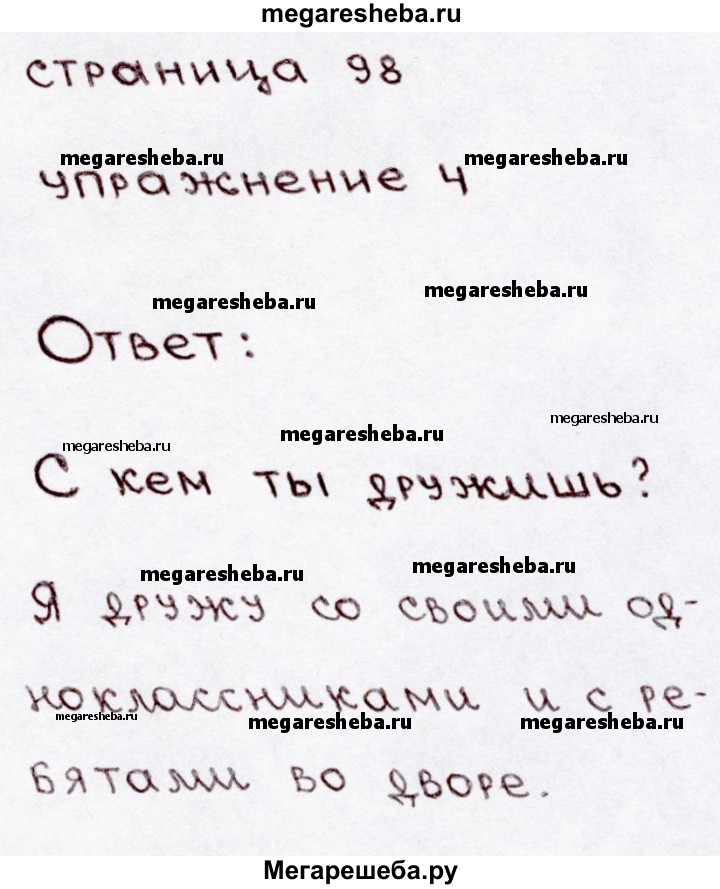 megaresheba.ru
страница 98
megaresheba.ru megaresheba.ru
упражнение 4
megaresheba.ru megaresheba.ru
Ответ:
megaresheba.ru megaresheba.ru megaresheba.ru
С кем ты дружишь?
megaresheba.ru megaresheba.ru
Я дружу со своими од-
ноклассниками и с ре-
megaresheba.ru megaresheba.ru megaresheba.ru
бятами во дворе.
Мегарешеба.ру